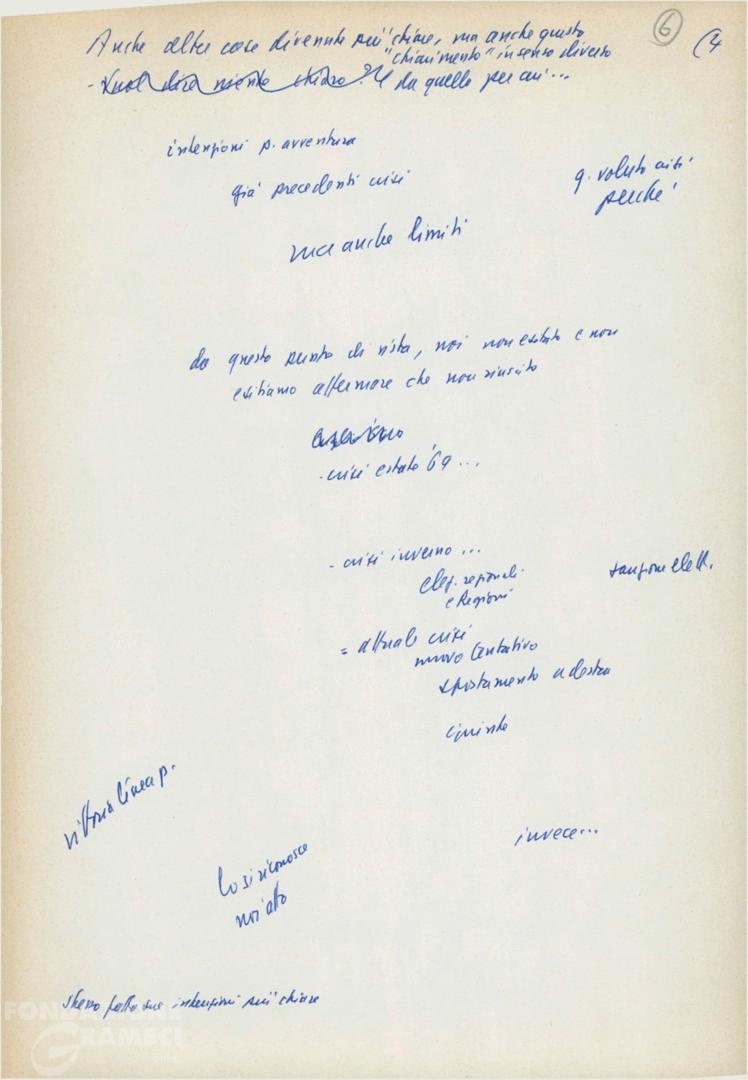 6
(4
Anche altre cose divenute più chiare, ma anche questo
"chiarimento" in senso diverso
- Vuol dire niente chiaro? E da quello per cui...
intenzioni p. avventura
già precedenti crisi
q. voluto crisi
perché
ma anche limiti
da questo punto di vista, noi non esitato e non
esitiamo affermare che non riuscito
- crisi estate '69...
- crisi inverno...
elez. regionali
e Regioni
= attuale crisi
nuovo tentativo
spostamento a destra
vittoria linea p.
invece...
Lo si riconosce
stesso fatto sue intenzioni più chiare
FONDAZIONE
GRAMSCI